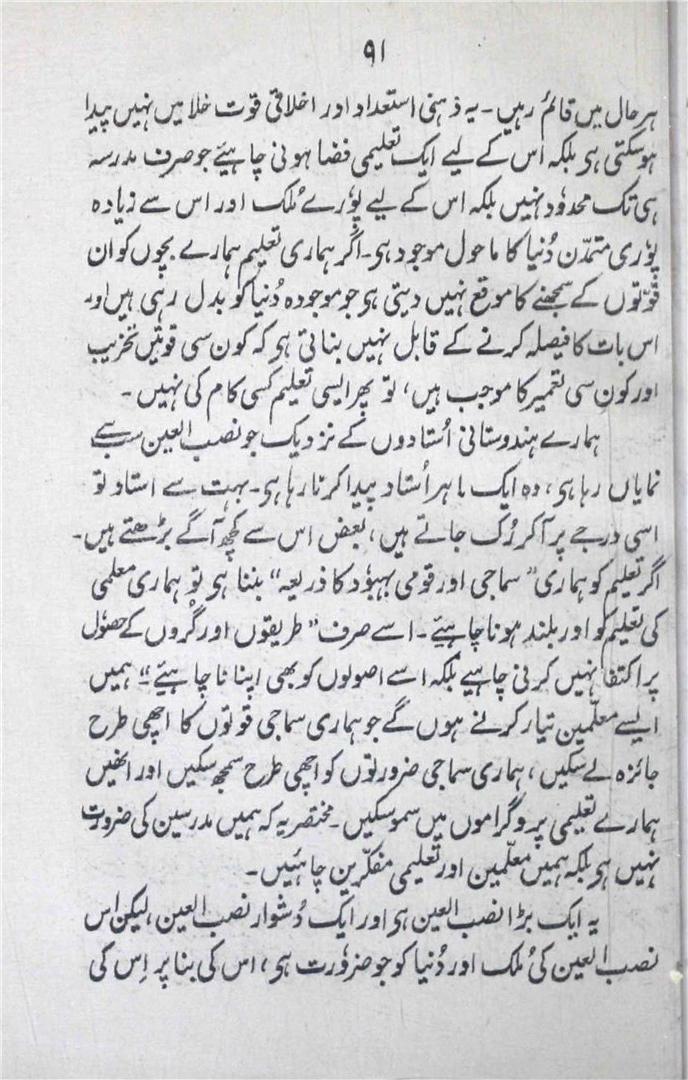 ۹۱
ہر حال میں قائم رہیں۔ یہ ذہنی استعداد اور اخلاقی قوت خلا میں نہیں پیدا
ہوسکتی ہی بلکہ اس کے لیے ایک تعلیمی فضا ہونی چاہیئے جو صرف مدرسہ
ہی تک محدود نہیں بلکہ اس کے لیے پوٗرے مُلک اور اس سے زیادہ
پوٗری متمدّن دُنیا کا ماحول موجود ہی۔ اگر ہماری تعلیم ہمارے بچوں کو ان
قوّتوں کے سمجھنے کا موقع نہیں دیتی ہی جو موجودہ دُنیا کو بدل رہی ہیں اور
اس بات کا فیصلہ کرنے کے قابل نہیں بناتی ہی کہ کون سی قوتیں تخریب
اور کون سی تعمیر کا موجب ہیں، تو پھر ایسی تعلیم کسی کام کی نہیں۔
ہمارے ہندوستانی اُستادوں کے نزدیک جو نصب العین سب سے
نمایاں رہا ہی، وہ ایک ماہر اُستاد پیدا کرنا رہا ہی۔ بہت سے استاد تو
اسی درجے پر آکر رُک جاتے ہیں، بعض اس سے کچھ آگے بڑھتے ہیں۔
اگر تعلیم کو ہماری ”سماجی اور قومی بہبوٗد کا ذریعہ“ بننا ہی تو ہماری معلمی
کی تعلیم کو اور بلند ہونا چاہیئے۔ اسے صرف ”طریقوں اور گُروں کے حصوٗل
پر اکتفا نہیں کرنی چاہیے بلکہ اسے اصولوں کو بھی اپنانا چاہیئے“۔ ہمیں
ایسے معلّمین تیار کرنے ہوں گے جو ہماری سماجی قوتوں کا اچھی طرح
جائزہ لے سکیں، ہماری سماجی ضرورتوں کو اچھی طرح سمجھ سکیں اور انھیں
ہمارے تعلیمی پروگراموں میں سمو سکیں۔ مختصر یہ کہ ہمیں مدرسین کی ضرورت
نہیں ہی بلکہ ہمیں معلّمین اور تعلیمی مفکّرین چاہئیں۔
یہ ایک بڑا نصب العین ہی اور ایک دُشوار نصب العین، لیکن اس
نصب العین کی مُلک اور دُنیا کو جو ضروٗرت ہی، اس کی بنا پر اِس کی